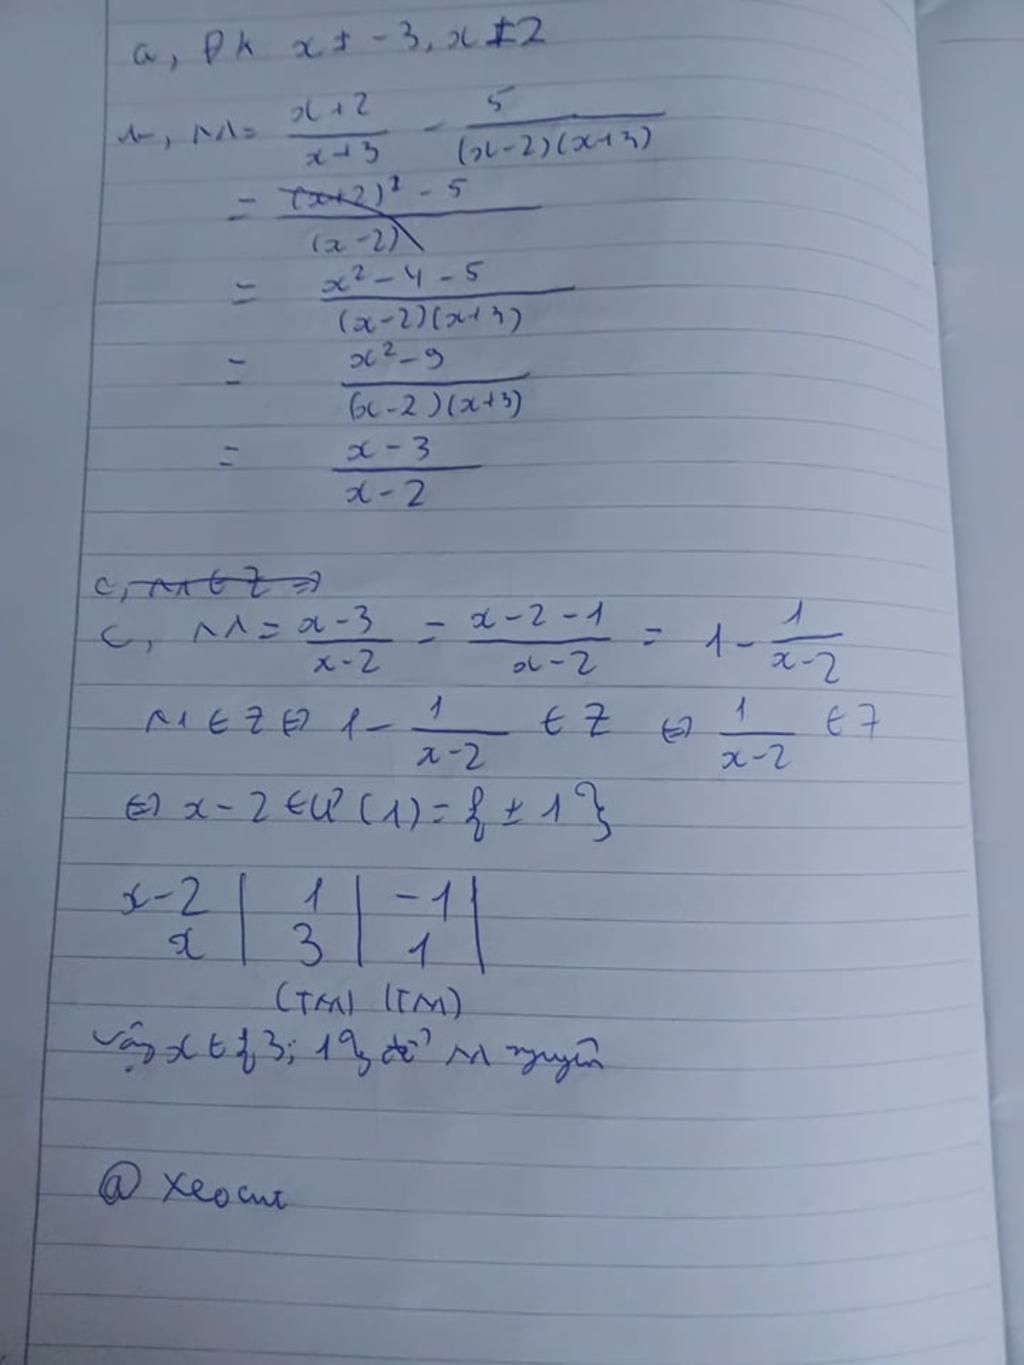 a, ĐK x ≠ -3, x ≠ 2
b, M = \frac{x+2}{x+3} - \frac{5}{(x-2)(x+3)}
= \frac{(x+2)^2 - 5}{(x-2)}
= \frac{x^2 - 4 - 5}{(x-2)(x+3)}
= \frac{x^2 - 9}{(x-2)(x+3)}
= \frac{x-3}{x-2}
c, M ∈ Z ⇒
c, M = \frac{x-3}{x-2} = \frac{x-2-1}{x-2} = 1 - \frac{1}{x-2}
M ∈ Z ⇔ 1 - \frac{1}{x-2} ∈ Z ⇔ \frac{1}{x-2} ∈ Z
⇔ x - 2 ∈ Ư(1) = {±1}
x-2 | 1 | -1 |
x | 3 | 1 |
(TM) (TM)
Vậy x ∈ {3; 1} để M nguyên
@ xeocut